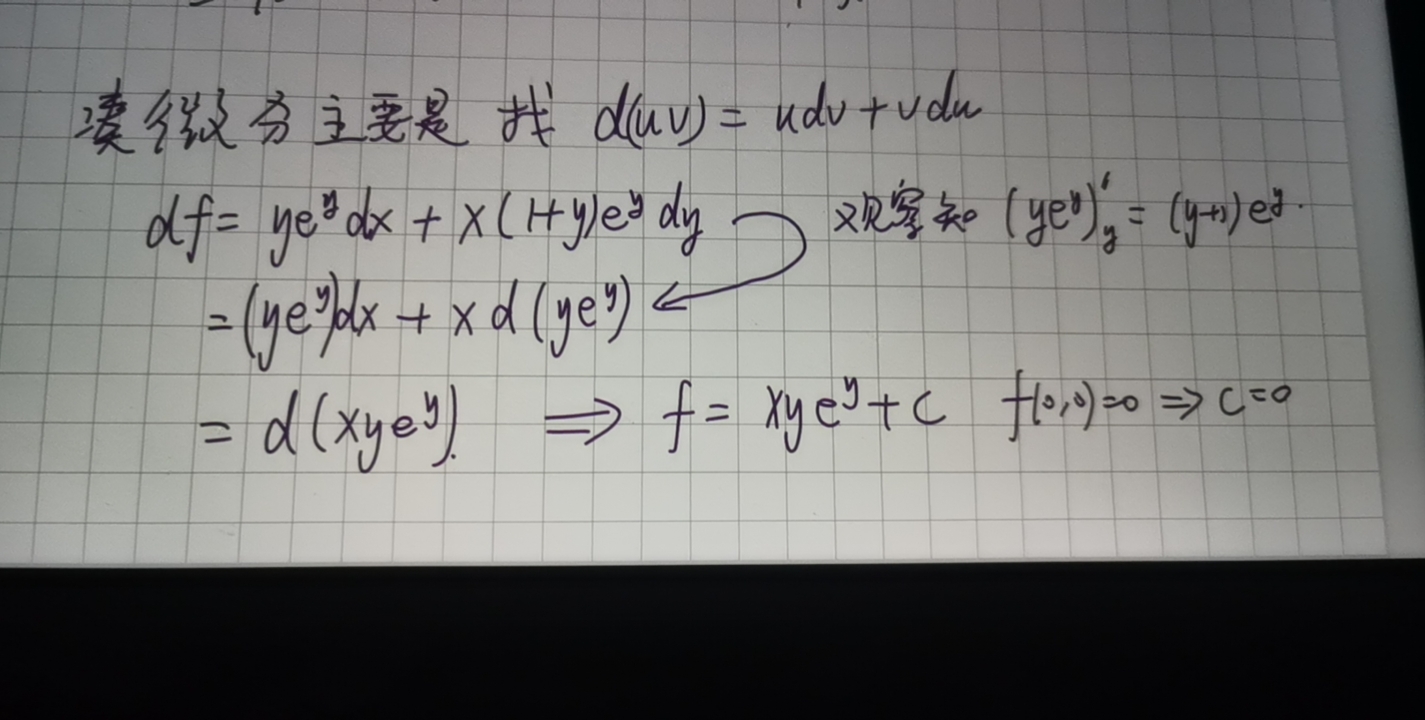 凑微分主要是 找 d(uv) = udv + vdu
df = ye^y dx + x(1+y)e^y dy 观察知 (ye^y)'_y = (y+1)e^y.
= (ye^y)dx + x d(ye^y)
= d(xye^y). ⟹ f = xye^y + c f(0,0)=0 ⇒ c=0